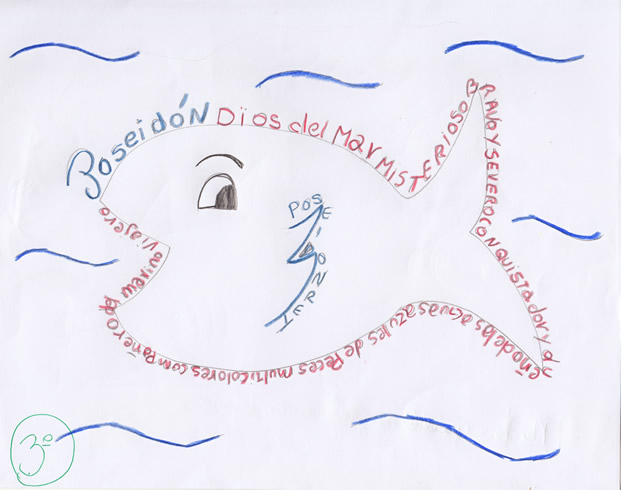 Poseidón Dios del Mar MISTERIOSO BRAVO Y SEVERO CONQUISTADOR y dueño de las aguas azules de Peces multicolores compañero del marino viajero
POSEIDON
3º